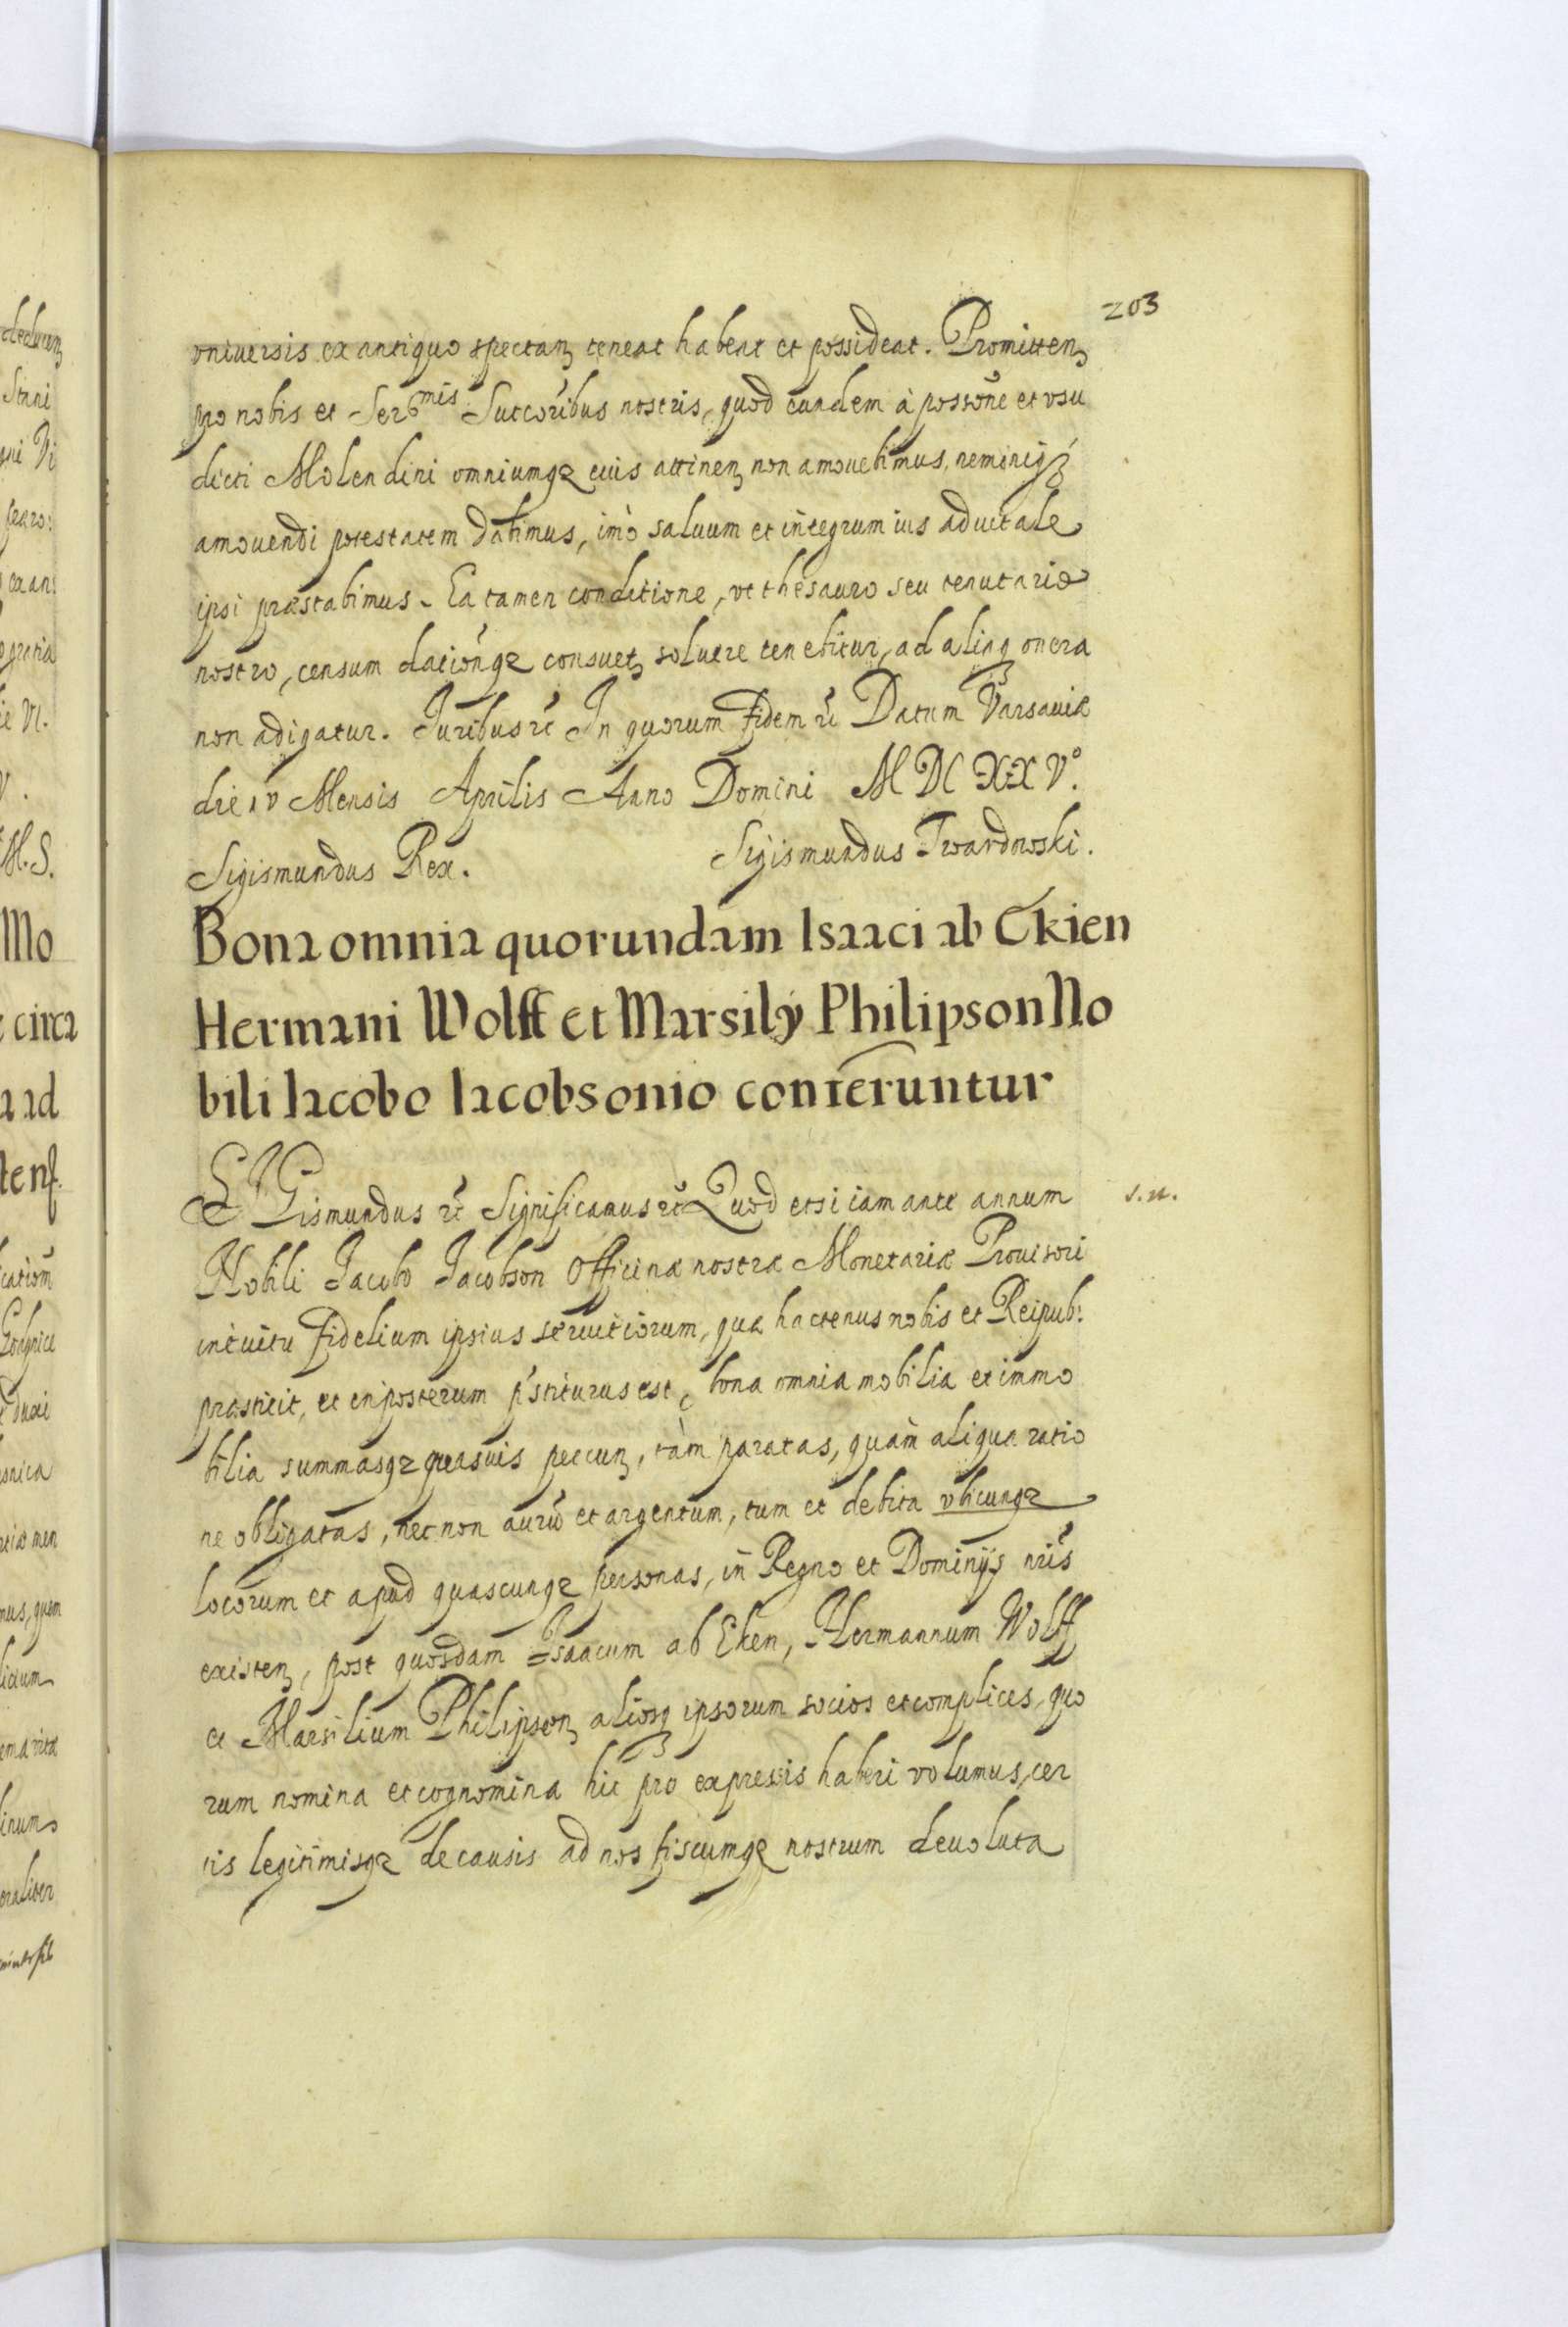 203
vniuersis ex antiquo spectan teneat habeat et possideat. Promitten
pro nobis et Ser^mis Succoribus nostris, quod eundem à possone et vsu
dicti Molendini omniumq eius attinen non amouebimus, neminiq
amouendi potestatem dabimus, imò saluum et integrum ius aduitale
ipsi præstabimus. Ea tamen conditione, vt thesauro seu tenutario
nostro, censum dationq consuet soluere tenebitur, ad aliaq onera
non adigatur. Juribus rc In quorum fidem rc Datum Varsauiæ
die IV Mensis Aprilis Anno Domini M DC XXV°.
Sigismundus Rex. Sigismundus Twardowski.
Bona omnia quorundam Isaaci ab Ekien
Hermani Wolff et Marsilÿ Philipson No
bili Iacobo Iacobsonio conferuntur
SIGismundus rc Significamus rc Quod etsi iam ante annum
s.n.
Nobili Jacobo Jacobson Officinæ nostræ Monetariæ Prouisori
intuitu fidelium ipsius seruitiorum, quæ hactenus nobis et Reipub:
præstitit, et in posterum p'stiturus est, bona omnia mobilia et immo
bilia summasq quasuis peccun, tàm paratas, quàm aliqua ratio
ne obligatas, nec non aurū et argentum, tum et debita vbicunq
locorum et apud quascunq personas, in Regno et Dominijs nris
existen, post quosdam Isaacum ab Eken, Hermannum Wolff
et Marsilium Philipson aliosq ipsorum socios et complices, quo
rum nomina et cognomina hic pro expressis haberi volumus, cer
tis legitimisq de causis ad nos fiscumq nostrum deuoluta